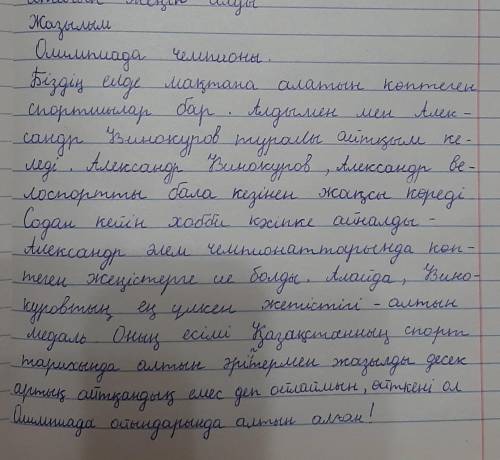 алтын жеңіп алды
Жазылым
Олимпиада чемпионы.
Біздің елде мақтана алатын көптеген
спортшылар бар. Алдымен мен Алек-
сандр Винокуров туралы айтқым ке-
леді. Александр Винокуров, Александр ве-
лоспортты бала кезінен жақсы көреді
Содан кейін хобби кәсіпке айналды -
Александр әлем чемпионаттарында көп-
теген жеңістерге ие болды. Алайда, Вино-
куровтың ең үлкен жетістігі - алтын
медаль. Оның есімі Қазақстанның спорт
тарихында алтын әріптермен жазылды десек
артық айтқандық емес деп ойлаймын, өйткені ол
Олимпиада ойындарында алтын алған!